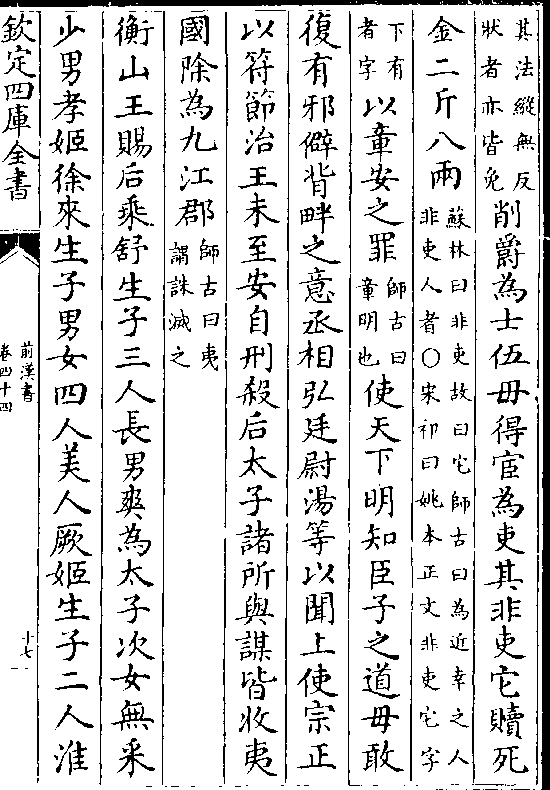 其法縱無反
狀者亦皆免
削爵為士伍毋得宦為吏其非吏它贖死
金二斤八兩
蘇林曰非吏故曰它師古曰為近幸之人
非吏人者○宋祁曰姚本正文非吏它字
下有
者字
以章安之罪
師古曰
章明也
使天下明知臣子之道毋敢
復有邪僻背畔之意丞相弘廷尉湯等以聞上使宗正
以符節治王未至安自刑殺后太子諸所與謀皆收夷
國除為九江郡
師古曰夷
謂誅滅之
衡山王賜后乘舒生子三人長男爽為太子次女無采
少男孝姬徐來生子男女四人美人厥姬生子二人淮
欽定四庫全書
前漢書
卷四十四
十七